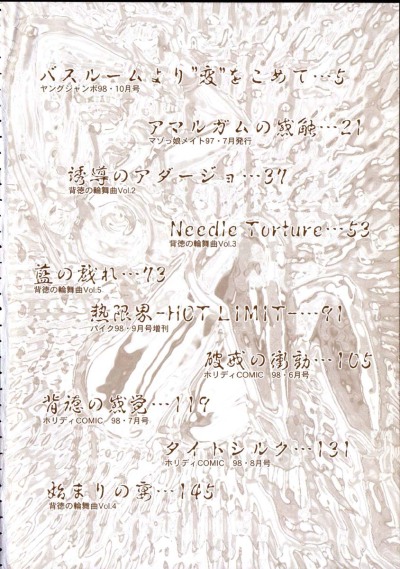 バスルームより"変"をこめて…5
ヤングジャンボ98・10月号
アマルガムの感触…21
マゾっ娘メイト97・7月発行
誘導のアダージョ…37
背徳の輪舞曲Vol.2
Needle Torture…53
背徳の輪舞曲Vol.3
藍の戯れ…73
背徳の輪舞曲Vol.5
熱限界-HOT LIMIT-…91
バイク98・9月号増刊
破戒の衝動…105
ホリディCOMIC 98・6月号
背徳の感覚…119
ホリディCOMIC 98・7月号
タイトシルク…131
ホリディCOMIC 98・8月号
始まりの宴…145
背徳の輪舞曲Vol.4